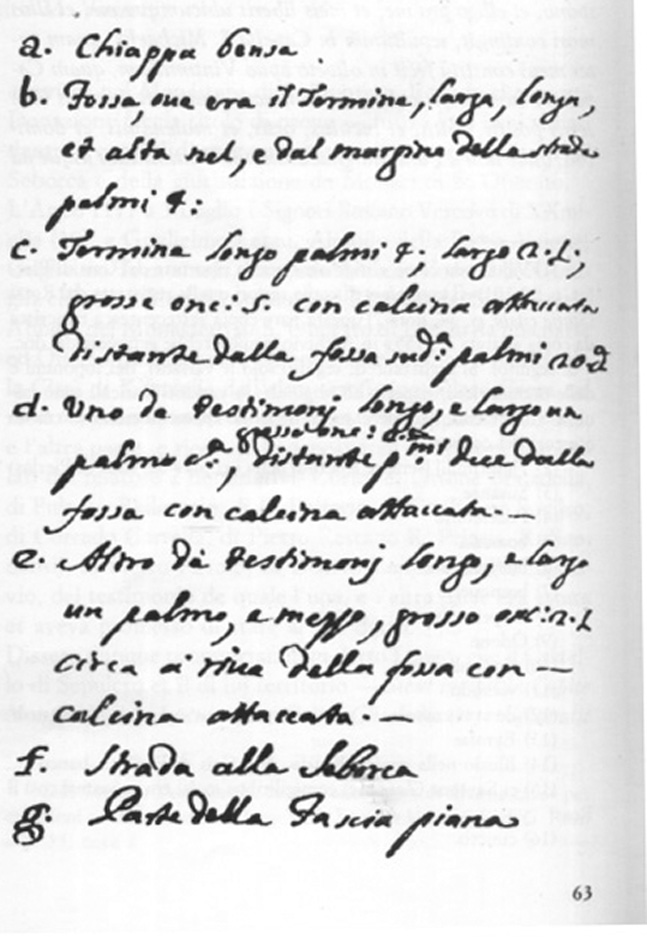 a. Chiappa bensa
b. Fossa oue era il Termine, larga, longa,
et alta nel, e dal margine della strada
palmi 4:
c. Termine longo palmi 4, largo 2.½,
grosso onc: 5. con calcina attaccata
distante dalla fossa sud.ª palmi 20.
d. Uno de testimonj longo, e largo un
palmo distante p.mi due dalla
fossa con calcina attaccata
e. Altro de testimonj longo, e largo
un palmo, e mezzo, grosso onc: 2.½
circa a riua della fossa con
calcina attaccata
f. Strada alla Seborca
g. Parte della Fascia piana
63